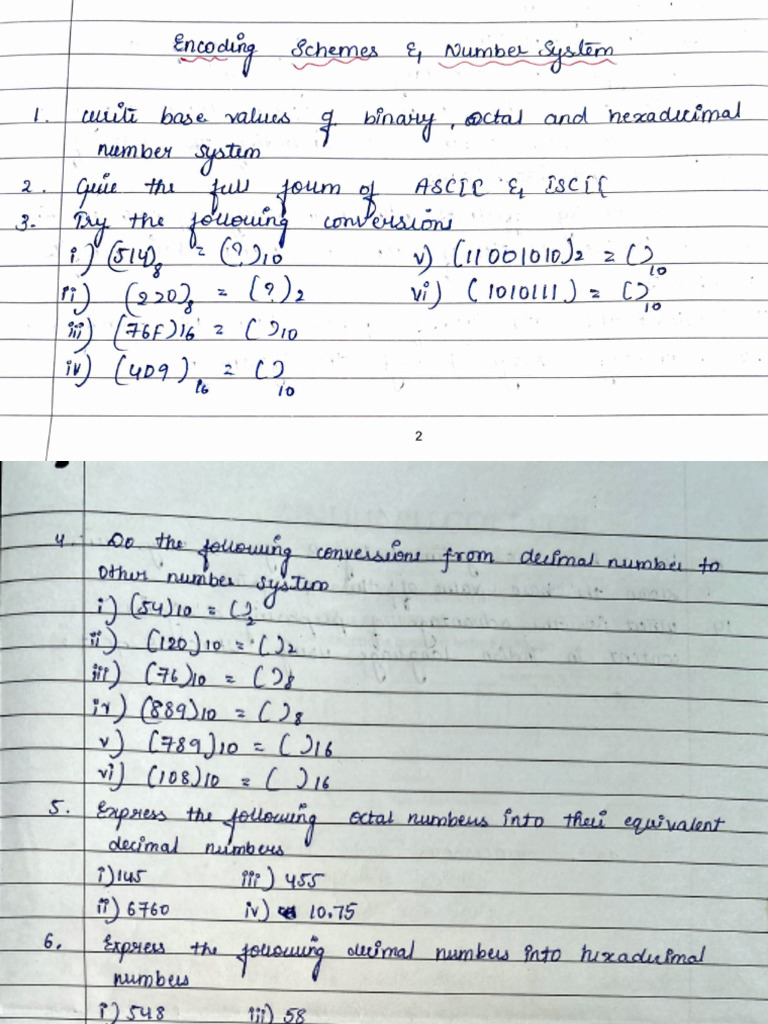 Encoding Schemes & Number System
1. Write base values of binary, octal and hexadecimal
number system
2. Give the full form of ASCII & ISCII
3. Try the following conversions
i) (514)8 = (?)10 v) (11001010)2 = ( )10
ii) (220)8 = (?)2 vi) (1010111) = ( )10
iii) (76F)16 = ( )10
iv) (4D9)16 = ( )10
2
4. Do the following conversions from decimal number to
other number system
i) (54)10 = ( )2
ii) (120)10 = ( )2
iii) (76)10 = ( )8
iv) (889)10 = ( )8
v) (789)10 = ( )16
vi) (108)10 = ( )16
5. Express the following octal numbers into their equivalent
decimal numbers
i) 145 iii) 455
ii) 6760 iv) 10.75
6. Express the following decimal numbers into hexadecimal
numbers
i) 548 iii) 58